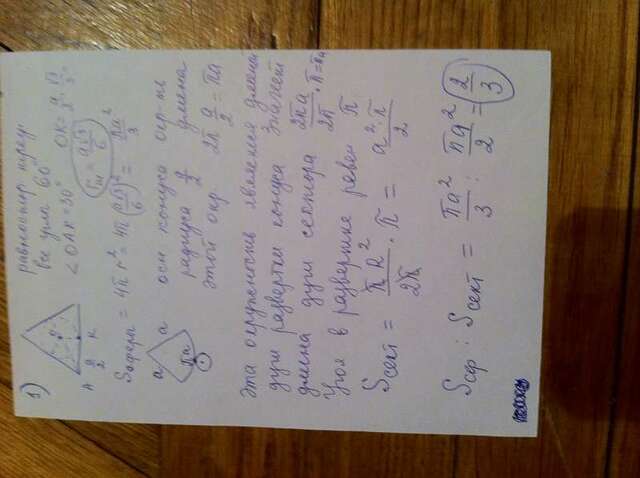 1)
равностор треуг.
все углы 60°
∠OAK = 30°
OK = a/2 · √3/3
A a/2 K
rш = a√3/6
Sсферы = 4πr² = 4π(a√3/6)² = πa²/3
a a πa
осн конуса окр-ть
радиуса a/2 длина
этой окр. 2π a/2 = πa
Эта окружность является длиной
дуги развертки конуса значит
длина дуги сектора 2πa/2π · π = πa
Угол в развертке равен π
Sсект = πR²/2π · π = a²π/2
Sсф : Sсект = πa²/3 : πa²/2 = 2/3